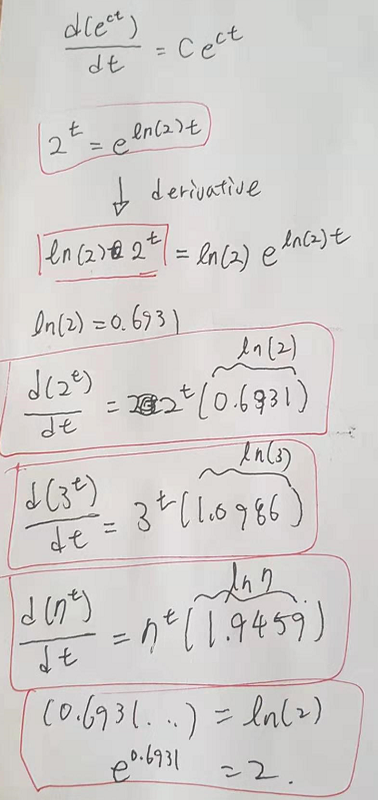 d(e^ct)/dt = Ce^ct
2^t = e^ln(2)t
↓ derivative
ln(2) 2^t = ln(2) e^ln(2)t
ln(2) = 0.6931
ln(2)
d(2^t)/dt = 2^t(0.6931)
ln(3)
d(3^t)/dt = 3^t(1.0986)
ln n
d(n^t)/dt = n^t(1.9459)
(0.6931...) = ln(2)
e^0.6931 = 2.